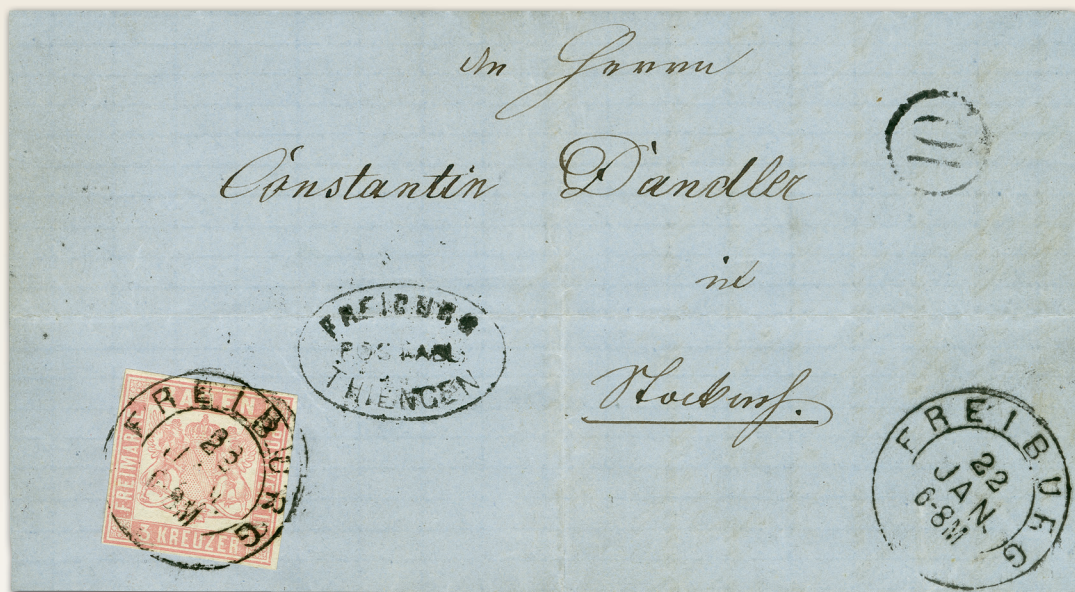 An Herrn
Constantin Dandler
in
Stockach.
10
FREIBURG
THIENGEN
FREIBURG
22
JAN.
6-8M
FREIBURG
23
6-8M
BADEN
FREIMARKE
3 KREUZER